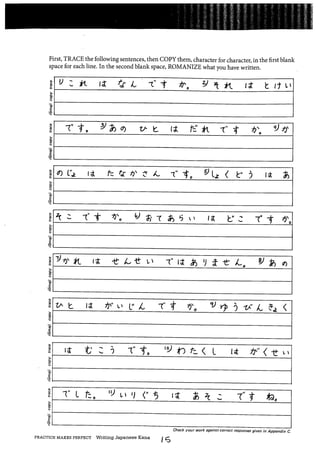 First, TRACE the following sentences, then COPY them, character for character, in the first blank
space for each line. In the second blank space, ROMANIZE what you have written.
1) これ は なん です か。 2) それ は とけい
です。 3) あの ひと は だれ です か。 4) か
のじょ は たなかさん です。 5) しょくどう は あ
そこ です か。 6) おてあらい は どこ です か。
7) かれ は せんせい では ありません。 8) あの
ひと は がいじん です か。 9) ゆうびんきょく
は むこう です。 10) わたくし は がくせい
でした。 11) いりぐち は あそこ ですね。
Check your work against correct responses given in Appendix C.
PRACTICE MAKES PERFECT Writing Japanese Kana
15